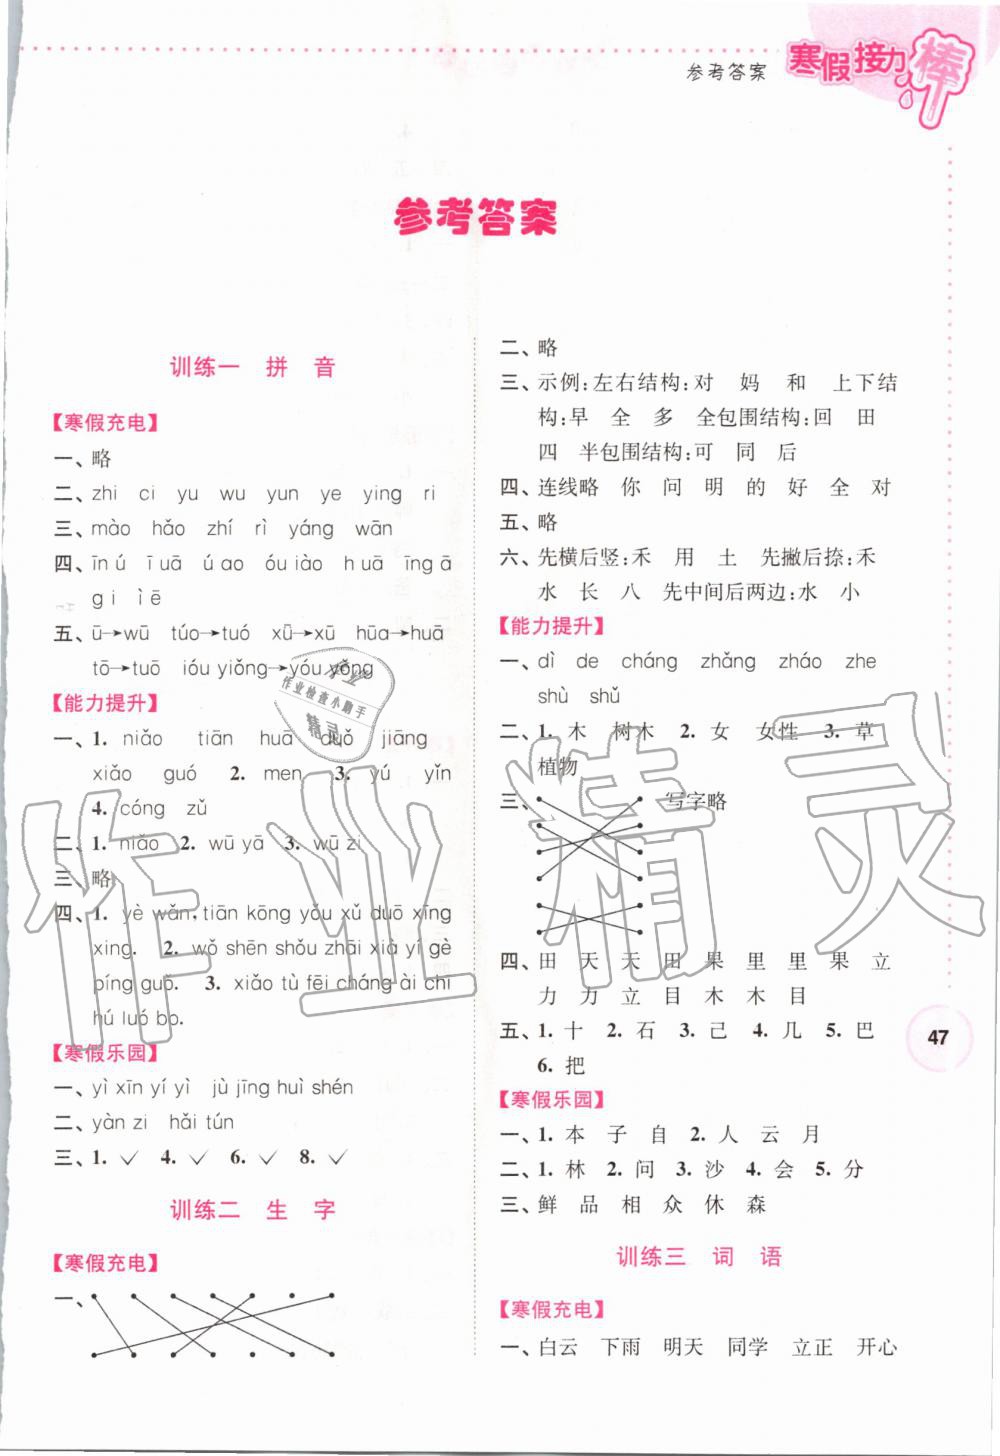 参考答案
寒假接力棒
参考答案
训练一 拼 音
【寒假充电】
一、略
二、zhi ci yu wu yun ye ying ri
三、mào hǎo zhí rì yáng wān
四、īn ú ī uā ú ao óu iào h uā īng ā
g i ì ē
五、ū→wū túo→tuó xǖ→xū hūa→huā
tō→tuō ióu yiǒng→yóu yǒng
【能力提升】
一、1. niǎo tiān huā duǒ jiāng
xiǎo guó 2. men 3. yú yǐn
4. cóng zǔ
二、1. niǎo 2. wū yā 3. wū zi
三、略
四、1. yè wǎn, tiān kōng yǒu xǔ duō xīng
xing. 2. wǒ shēn shǒu zhāi xià yí gè
píng guǒ. 3. xiǎo tù fēi cháng ài chī
hú luó bo.
【寒假乐园】
一、yì xīn yí yì jù jīng huì shén
二、yàn zi hǎi tún
三、1. ✓ 4. ✓ 6. ✓ 8. ✓
训练二 生 字
【寒假充电】
一、
二、略
三、示例:左右结构:对 妈 和 上下结
构:早 全 多 全包围结构:回 田
四 半包围结构:可 同 后
四、连线略 你 问 明 的 好 全 对
五、略
六、先横后竖:禾 用 土 先撇后捺:禾
水 长 八 先中间后两边:水 小
【能力提升】
一、dì de cháng zhǎng zháo zhe
shù shǔ
二、1. 木 树木 2. 女 女性 3. 草
植物
三、 写字略
四、田 天 天 田 果 里 里 果 立
力 力 立 目 木 木 目
五、1. 十 2. 石 3. 己 4. 几 5. 巴
6. 把
【寒假乐园】
一、1. 本 子 自 2. 人 云 月
二、1. 林 2. 问 3. 沙 4. 会 5. 分
三、鲜 品 相 众 休 森
训练三 词 语
【寒假充电】
一、白云 下雨 明天 同学 立正 开心
47
作业
作业检查小助手
精灵
作业精灵